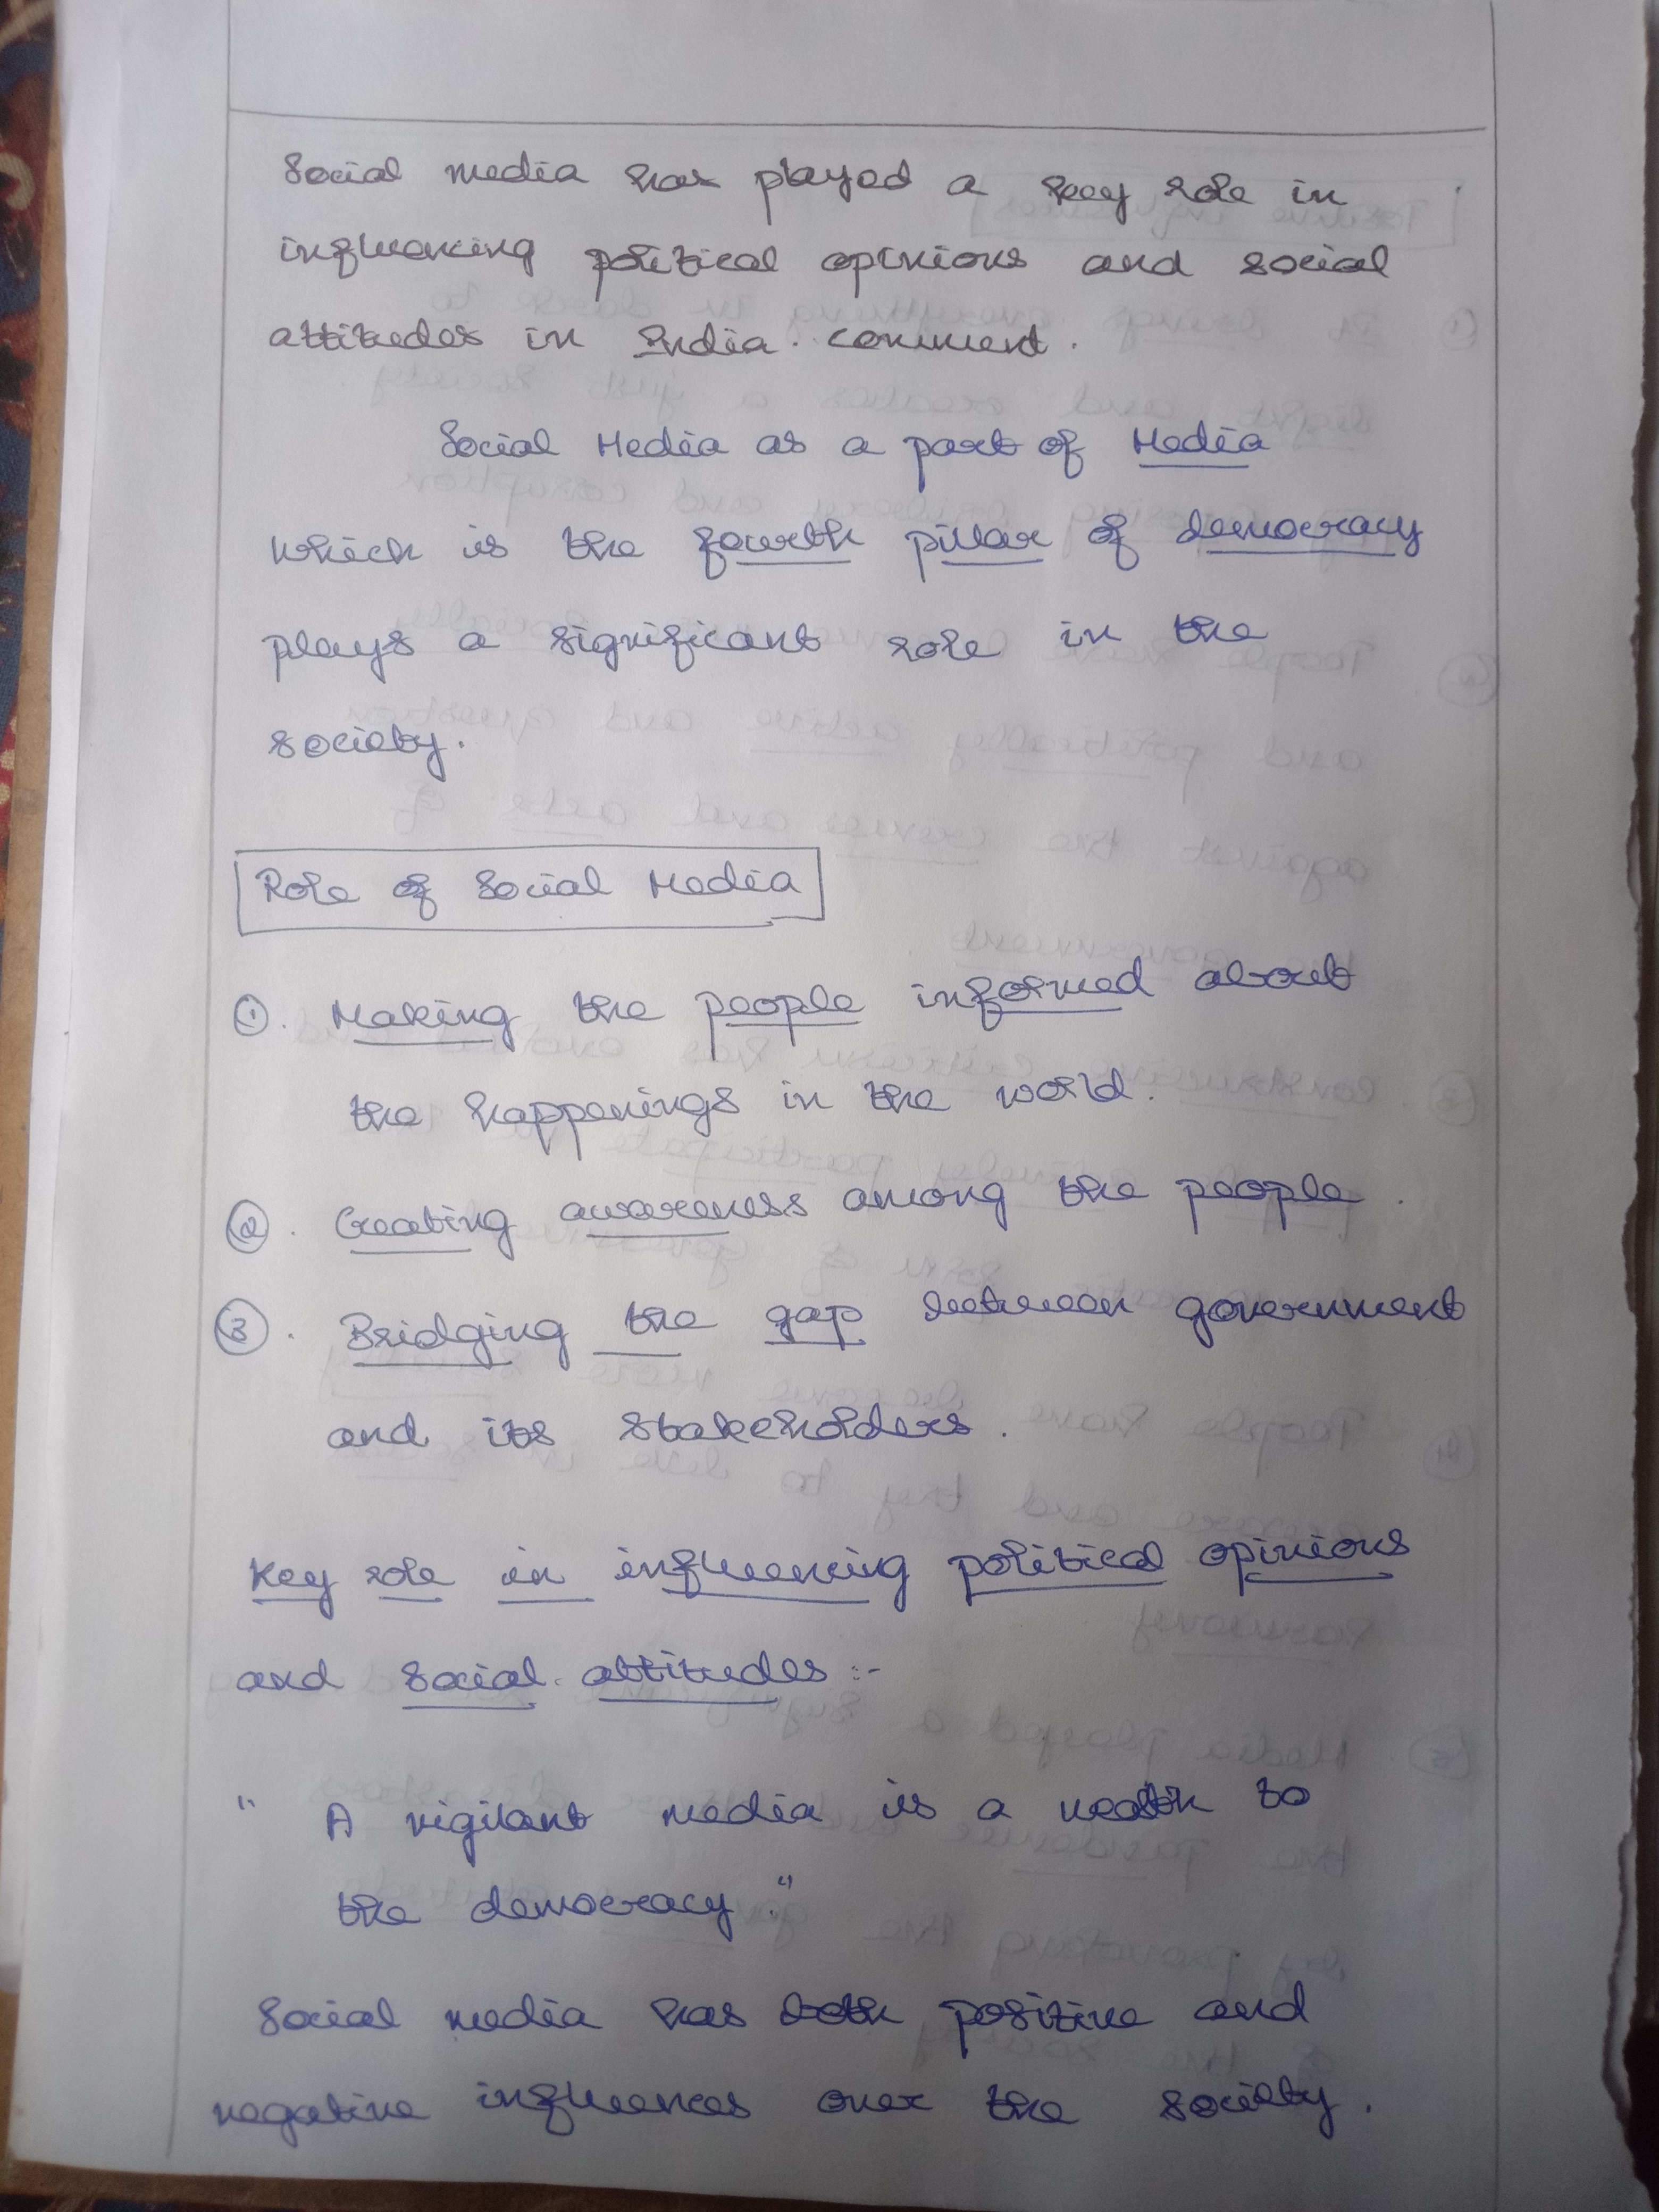 Social media has played a key role in
influencing political opinions and social
attitudes in India. comment.
Social Media as a part of Media
which is the fourth pillar of democracy
plays a significant role in the
society.
Role of Social Media
①. Making the people informed about
the happenings in the world.
②. Creating awareness among the people.
③. Bridging the gap between government
and its stakeholders.
Key role in influencing political opinions
and social attitudes :-
" A vigilant media is a to
the democracy."
Social media has both positive and
negative influences over the society.